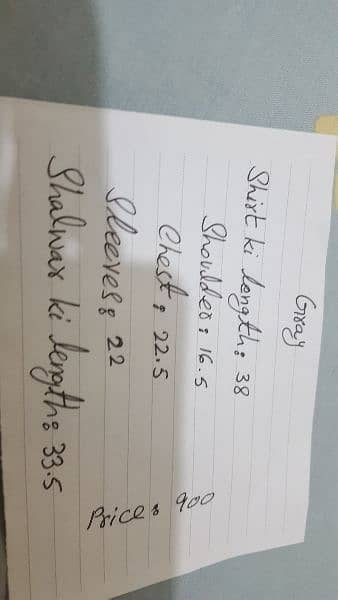 Gray
Shirt ki length: 38
Shoulder: 16.5
Chest: 22.5
Sleeves: 22
Shalwar ki length: 33.5
Price: 900